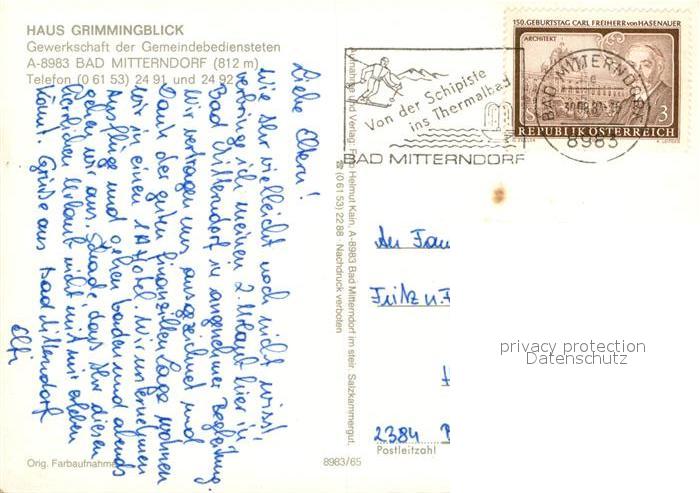 HAUS GRIMMINGBLICK
Gewerkschaft der Gemeindebediensteten
A-8983 BAD MITTERNDORF (812 m)
Telefon (0 61 53) 24 91 und 24 92
Liebe Eltern!
Wie Ihr vielleicht noch nicht wisst,
verbringe ich meinen 2. Urlaub hier in
Bad Mitterndorf in angenehmer Begleitung
Wir vertragen uns ausgezeichnet und
Dank der guten finanziellen Lage wohnen
wir in einem 1A Hotel. Wir unternehmen
Ausflüge und gehen baden und abends
gehen wir aus. Schade, dass Ihr diesen
herrlichen Urlaub nicht mit mir erleben
könnt. Grüße aus Bad Mitterndorf
Elfi
Orig. Farbaufnahme
8983/65
Aufnahme und Verlag: Helmut Kain, A-8983 Bad Mitterndorf im steir. Salzkammergut.
☎ (0 61 53) 22 88 · Nachdruck verboten
Von der Schipiste
ins Thermalbad
BAD MITTERNDORF
150. GEBURTSTAG CARL FREIHERR von HASENAUER
ARCHITEKT
S 3
REPUBLIK ÖSTERREICH
BAD MITTERNDORF
8983
An Fam
Fritz u.
2384
Postleitzahl
privacy protection
Datenschutz